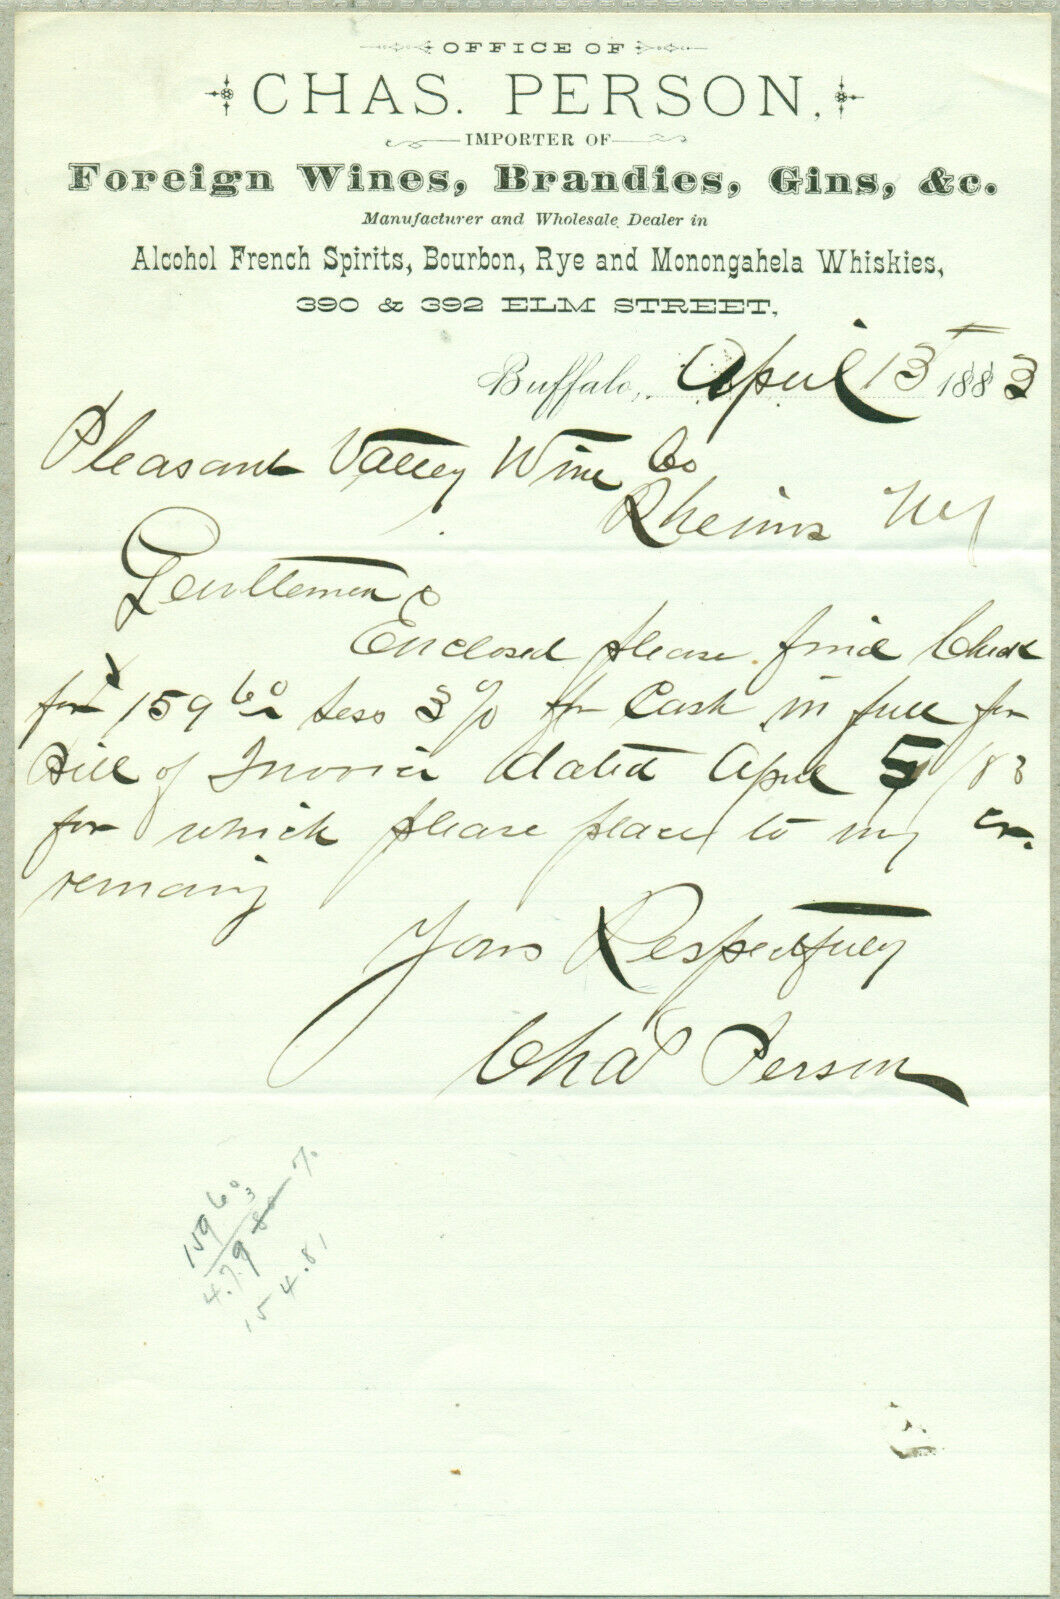 OFFICE OF
CHAS. PERSON,
IMPORTER OF
Foreign Wines, Brandies, Gins, &c.
Manufacturer and Wholesale Dealer in
Alcohol French Spirits, Bourbon, Rye and Monongahela Whiskies,
390 & 392 ELM STREET,
Buffalo, April 13th 1883
Pleasant Valley Wine Co
Rheims NY
Gentlemen
Enclosed please find Check
for $159 60 less 3% for Cash in full for
Bill of Invoice dated April 5/83
for which please place to my cr.
remaing
Yours Respectfully
Chas Person
159 60
3 %
4.79
154.81